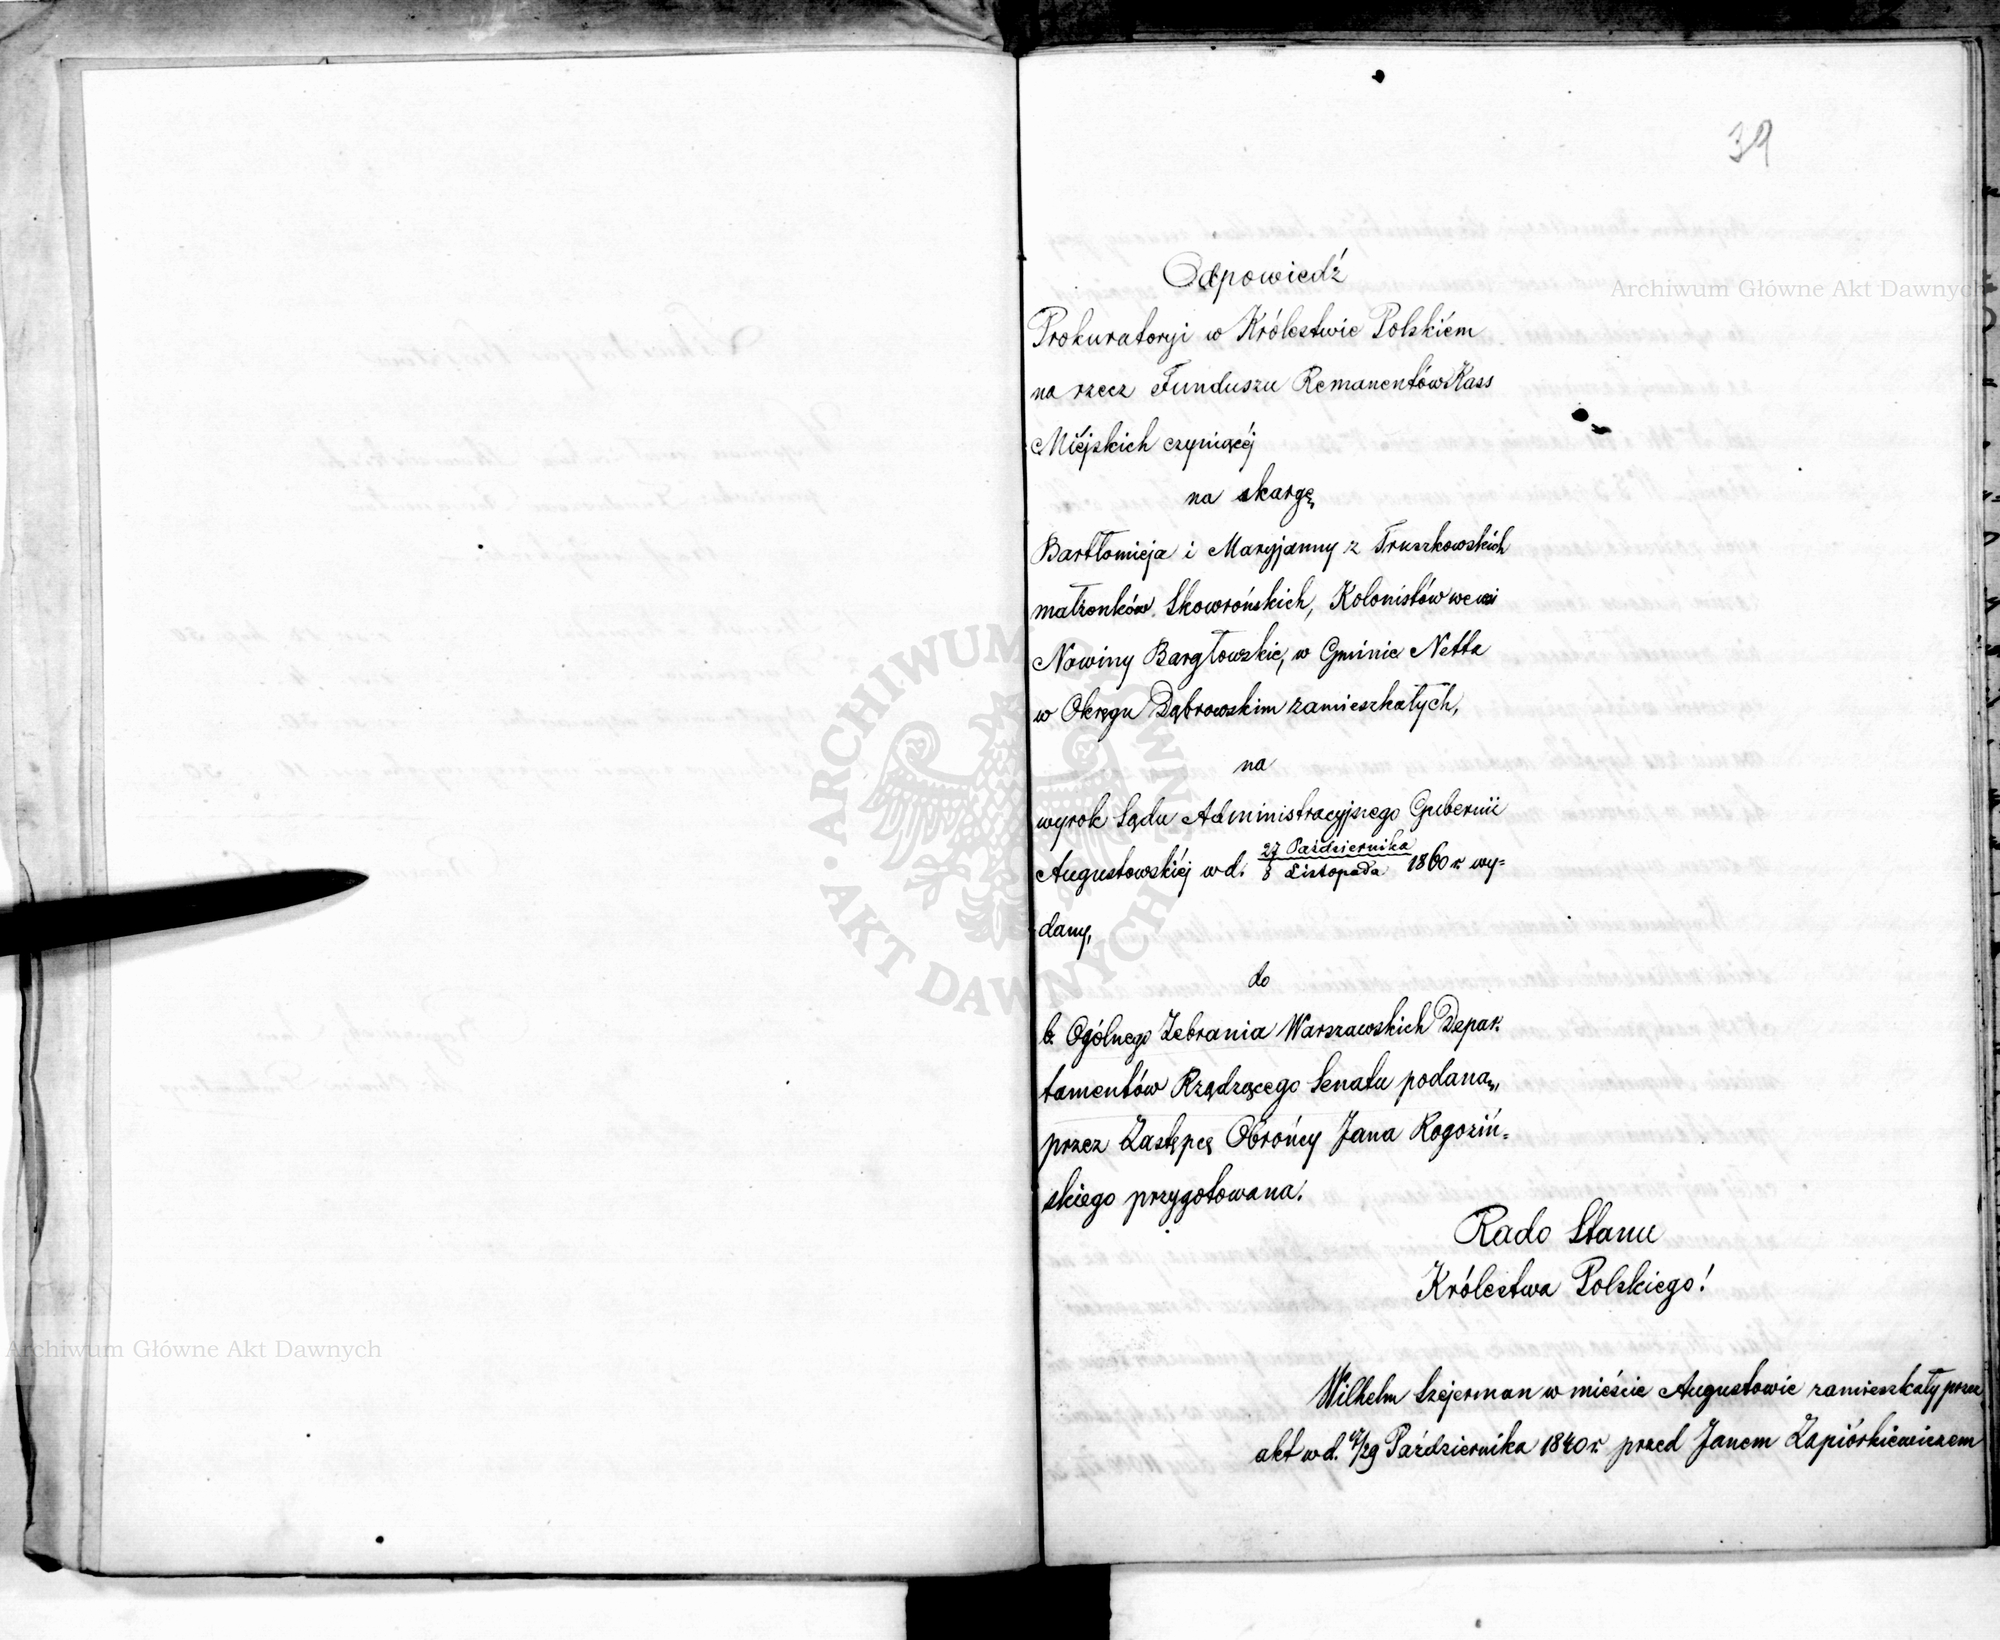 39
Odpowiedź
Prokuratoryi w Królestwie Polskiem
na rzecz Funduszu Remanentów Kass
Miejskich czyniącéj
na skargę
Bartłomieja i Maryjanny z Truszkowskich
małżonków Skowrońskich, Kolonistów we wsi
Nowiny Bargłowskie, w Gminie Netta
w Okręgu Dąbrowskim zamieszkałych,
na
wyrok Sądu Administracyjnego Gubernii
27 Października
Augustowskiéj w d. 8 Listopada 1860 r. wy=
dany,
do
b. Ogólnego Zebrania Warszawskich Depar
tamentów Rządzącego Senatu podaną,
przez Zastępcę Obrońcy Jana Rogoziń=
skiego przygotowana.
Rado Stanu
Królestwa Polskiego!
Wilhelm Szejerman w mieście Augustowie zamieszkały przez
akt w d. /29 Października 1840 r. przed Janem Zapiórkiewiczem
Archiwum Główne Akt Dawnych
Archiwum Główne Akt Dawnych
ARCHIWUM GŁÓWNE AKT DAWNYCH